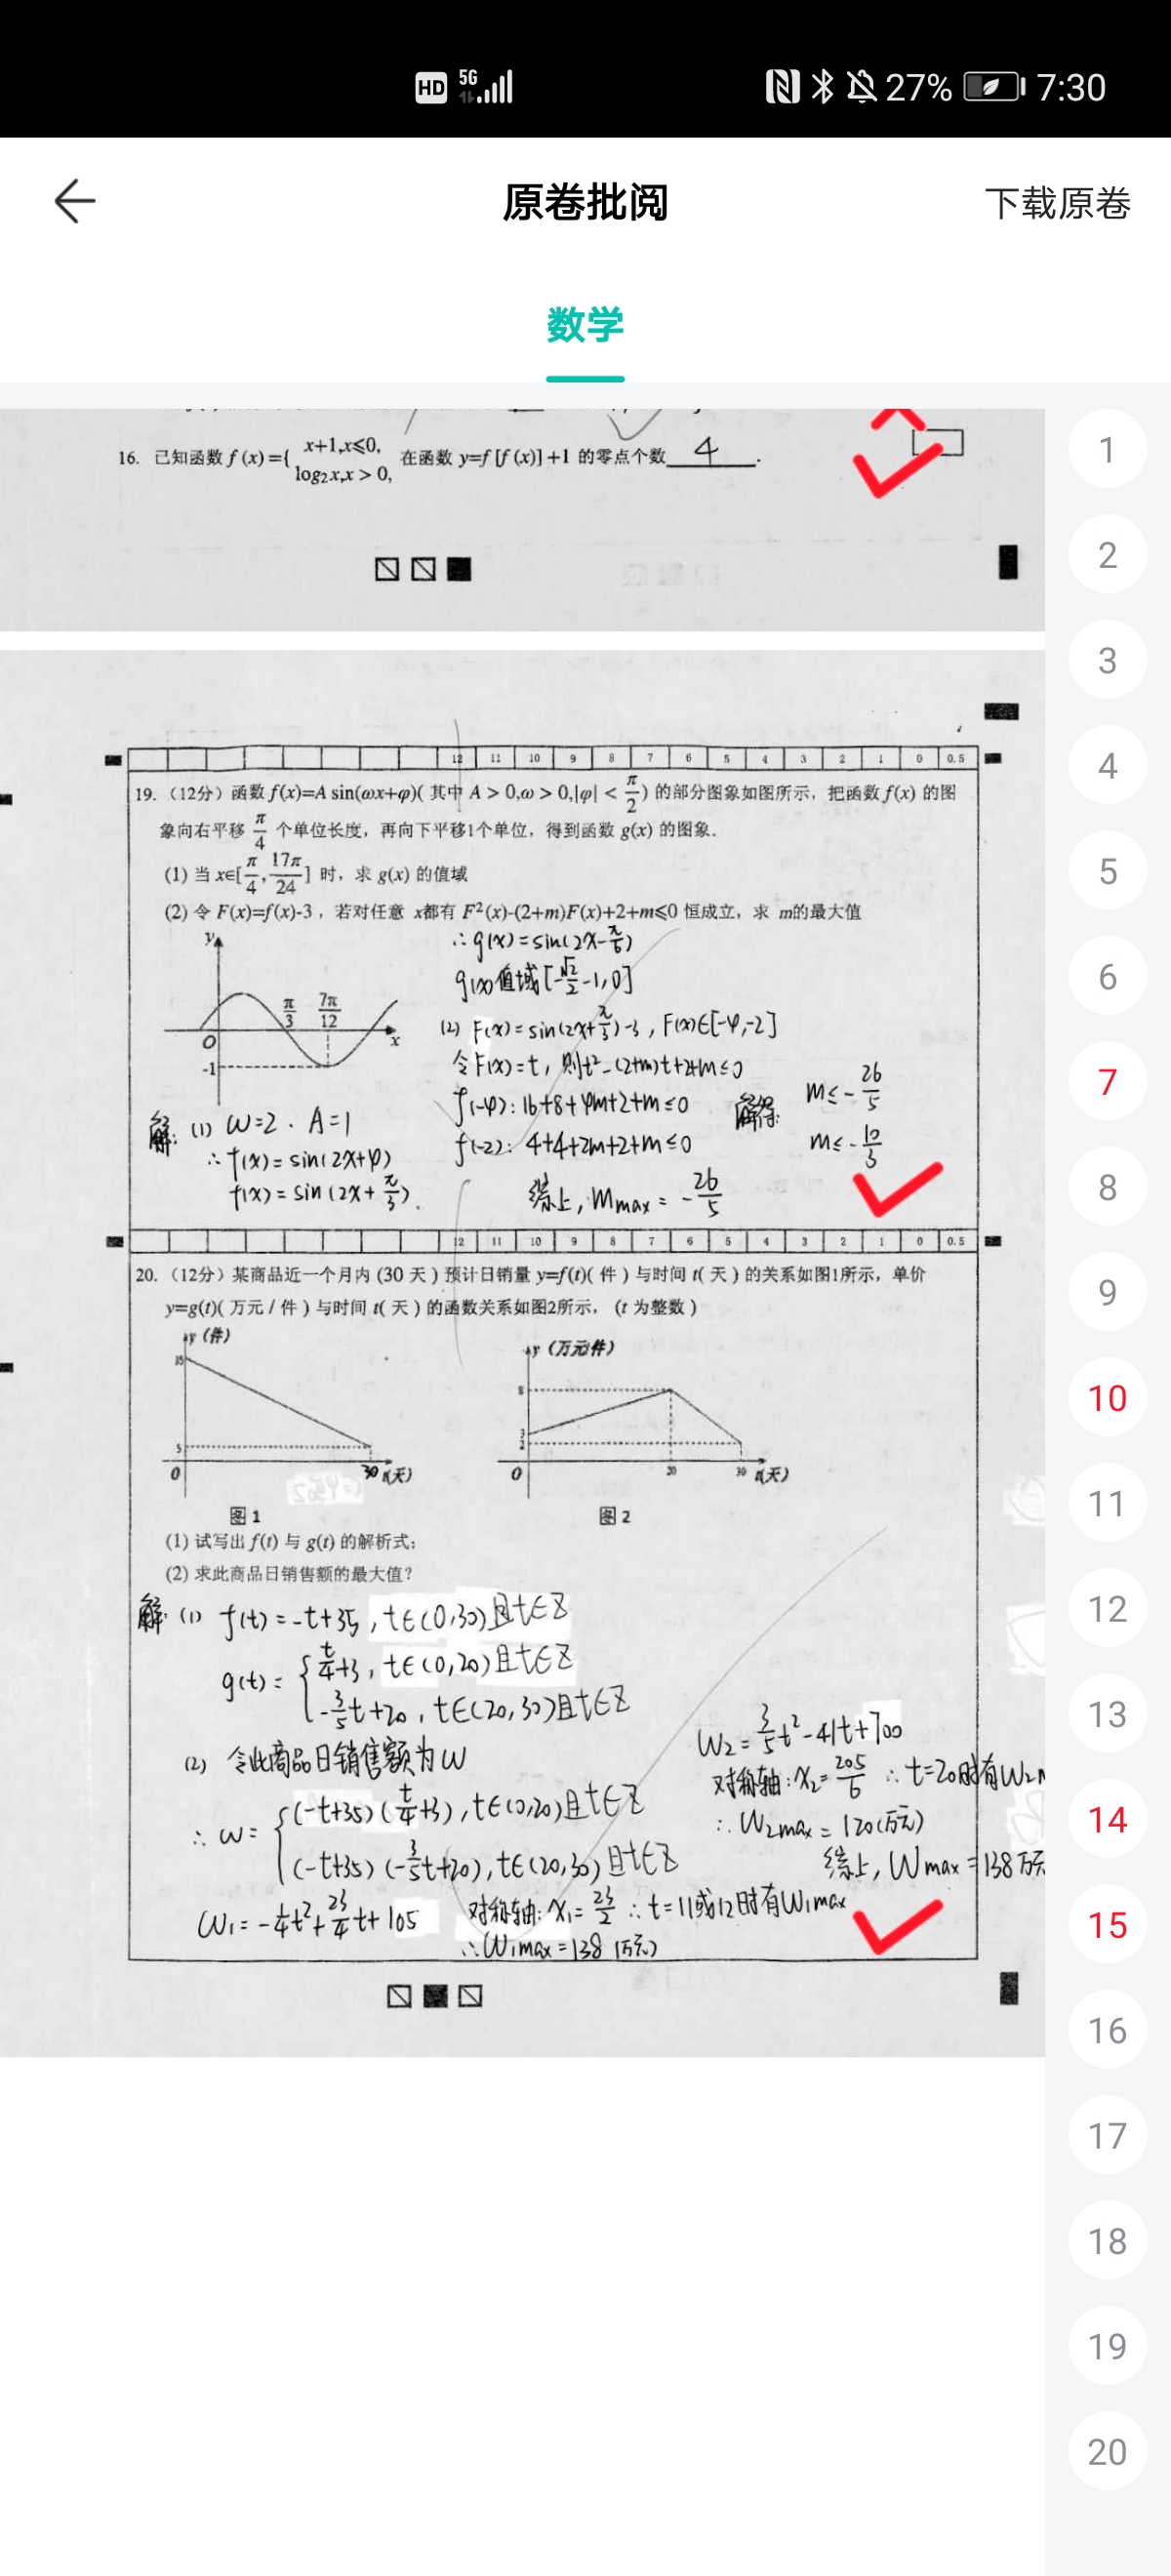 HD 5G 27% 7:30
原卷批阅 下载原卷
数学
16. 已知函数 f (x) ={ x+1,x≤0, log₂x,x > 0, 在函数 y=f [f (x)] +1 的零点个数 4 .
12 11 10 9 8 7 6 5 4 3 2 1 0 0.5
19. （12分）函数 f(x)=A sin(ωx+φ)( 其中 A > 0,ω > 0,|φ| < π/2 ) 的部分图象如图所示，把函数 f(x) 的图
象向右平移 π/4 个单位长度，再向下平移1个单位，得到函数 g(x) 的图象.
(1) 当 x∈[π/4, 17π/24] 时，求 g(x) 的值域
(2) 令 F(x)=f(x)-3 , 若对任意 x都有 F²(x)-(2+m)F(x)+2+m≤0 恒成立，求 m的最大值
y
π/3 7π/12
O x
-1
解: (1) ω=2 . A=1
∴ f(x) = sin(2x+φ)
f(x) = sin (2x+π/3).
∴ g(x) = sin(2x-π/6)
g(x) 值域 [-√2/2-1, 0]
(2) F(x) = sin(2x+π/3)-3 , F(x)∈[-4,-2]
令F(x)=t , 则t²-(2+m)t+2+m≤0
f(-4): 16+8+4m+2+m≤0 解得: m≤-26/5
f(-2): 4+4+2m+2+m≤0 m≤-10/3
综上, m max = -26/5
12 11 10 9 8 7 6 5 4 3 2 1 0 0.5
20. （12分）某商品近一个月内 (30 天 ) 预计日销量 y=f(t)( 件 ) 与时间 t( 天 ) 的关系如图1所示，单价
y=g(t)( 万元 / 件 ) 与时间 t( 天 ) 的函数关系如图2所示，(t 为整数 )
y (件)
35
5
O 30 t(天)
图 1
y (万元/件)
8
3
2
O 20 30 t(天)
图 2
(1) 试写出 f(t) 与 g(t) 的解析式;
(2) 求此商品日销售额的最大值？
解: (1) f(t) = -t+35 , t∈(0,30)且t∈Z
g(t) = { t/4+3 , t∈(0,20)且t∈Z
-3/5t+20 , t∈(20,30)且t∈Z
(2) 令此商品日销售额为W
∴ W= { (-t+35)(t/4+3) , t∈(0,20)且t∈Z
(-t+35)(-3/5t+20) , t∈(20,30)且t∈Z
W₁= -1/4t²+23/4t+105 对称轴: x₁=23/2 ∴ t=11或12时有W₁max
∴W₁max=138 (万元)
W₂=3/5t²-41t+700
对称轴: x₂=205/6 ∴ t=20时有W₂
∴ W₂max = 120(万元)
综上, Wmax =138万
1
2
3
4
5
6
7
8
9
10
11
12
13
14
15
16
17
18
19
20